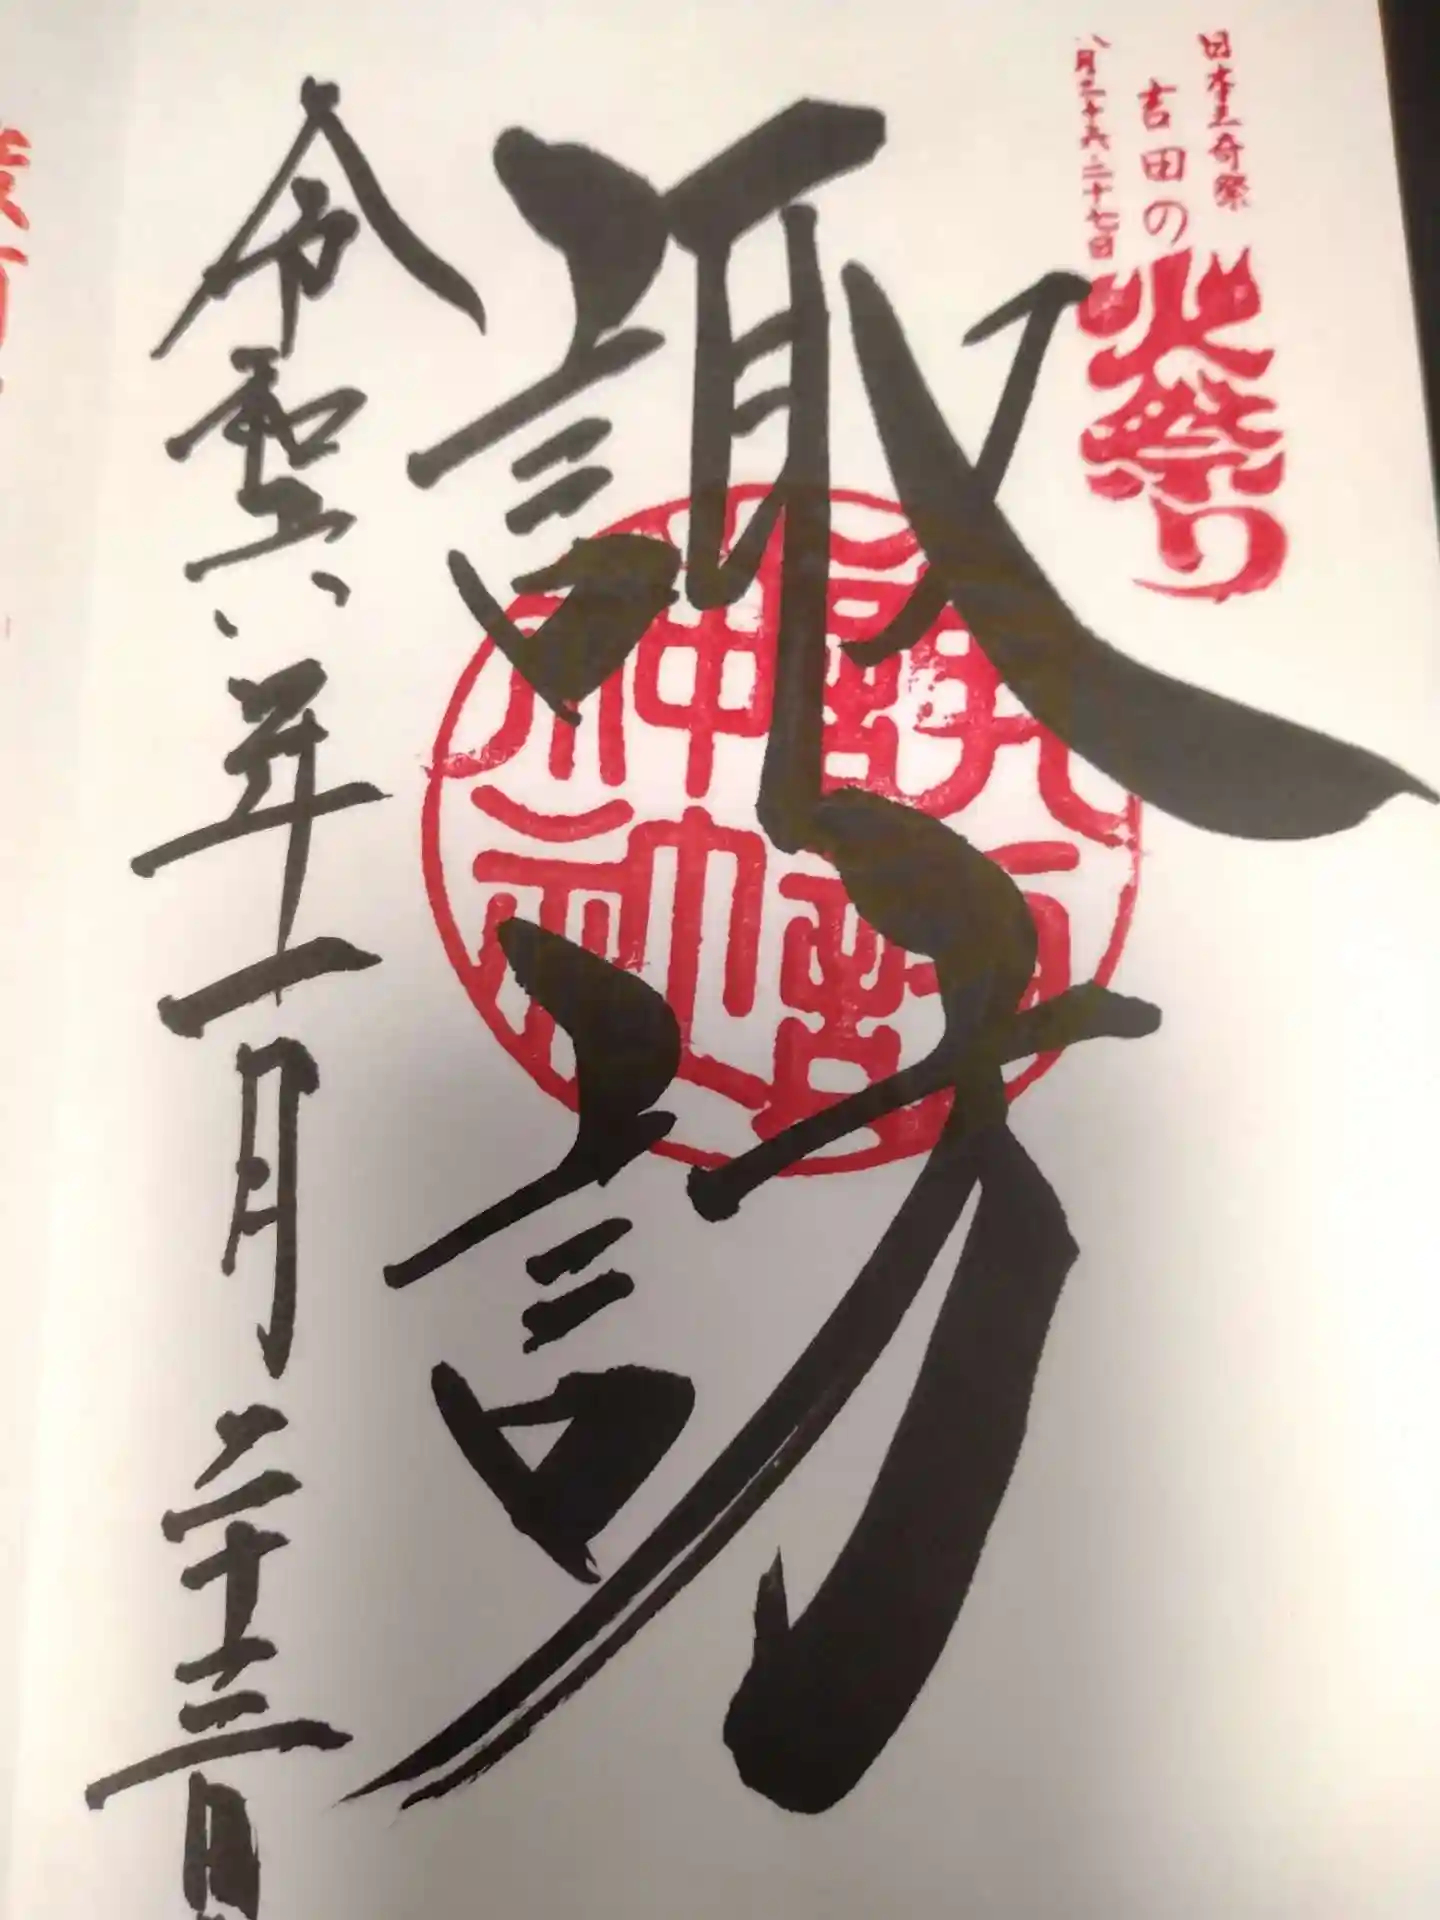 日本三奇祭
吉田の
火祭り
八月二十六・二十七日
諏訪
令和六年十一月二十三日